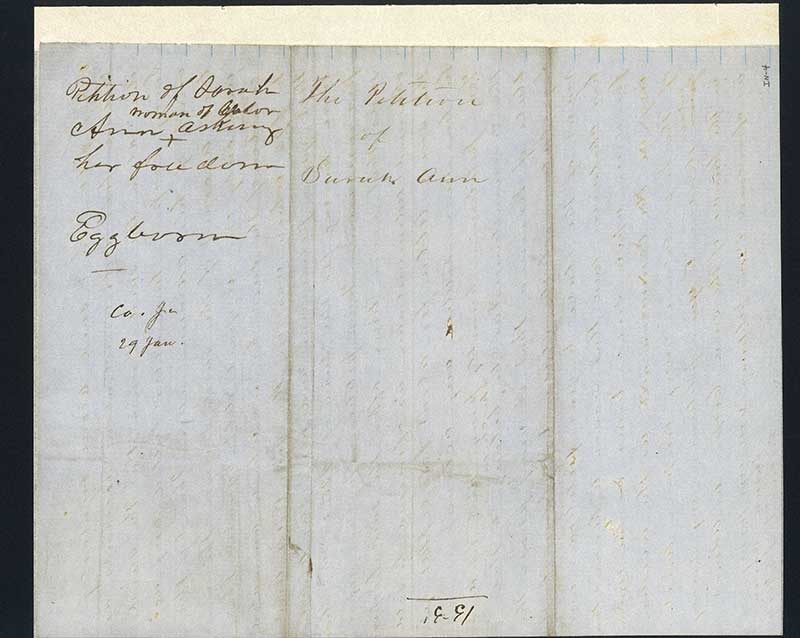 Petition of Sarah
woman of Color
Ann x asking
her freedom
Eggborn
Co. Ju
29 Jan.
The Petition
of
Sarah Ann
IN-4